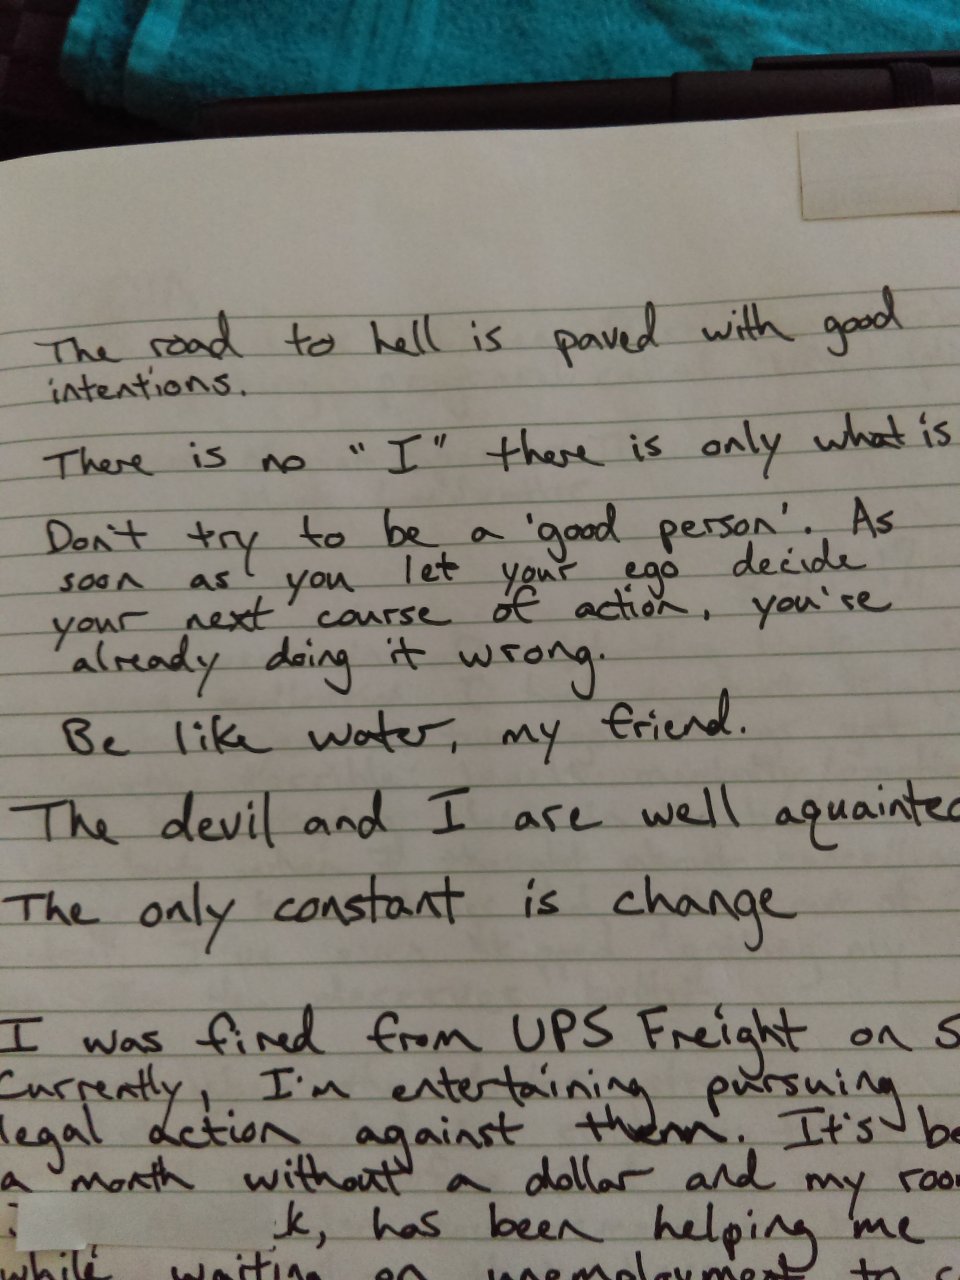 The road to hell is paved with good
intentions.
There is no "I" there is only what is
Don't try to be a 'good person'. As
soon as you let your ego decide
your next course of action, you're
already doing it wrong.
Be like water, my friend.
The devil and I are well aquainted
The only constant is change
I was fired from UPS Freight on
Currently, I'm entertaining pursuing
legal action against them. It's
a month without a dollar and my
has been helping me
while waiting on unemployment to